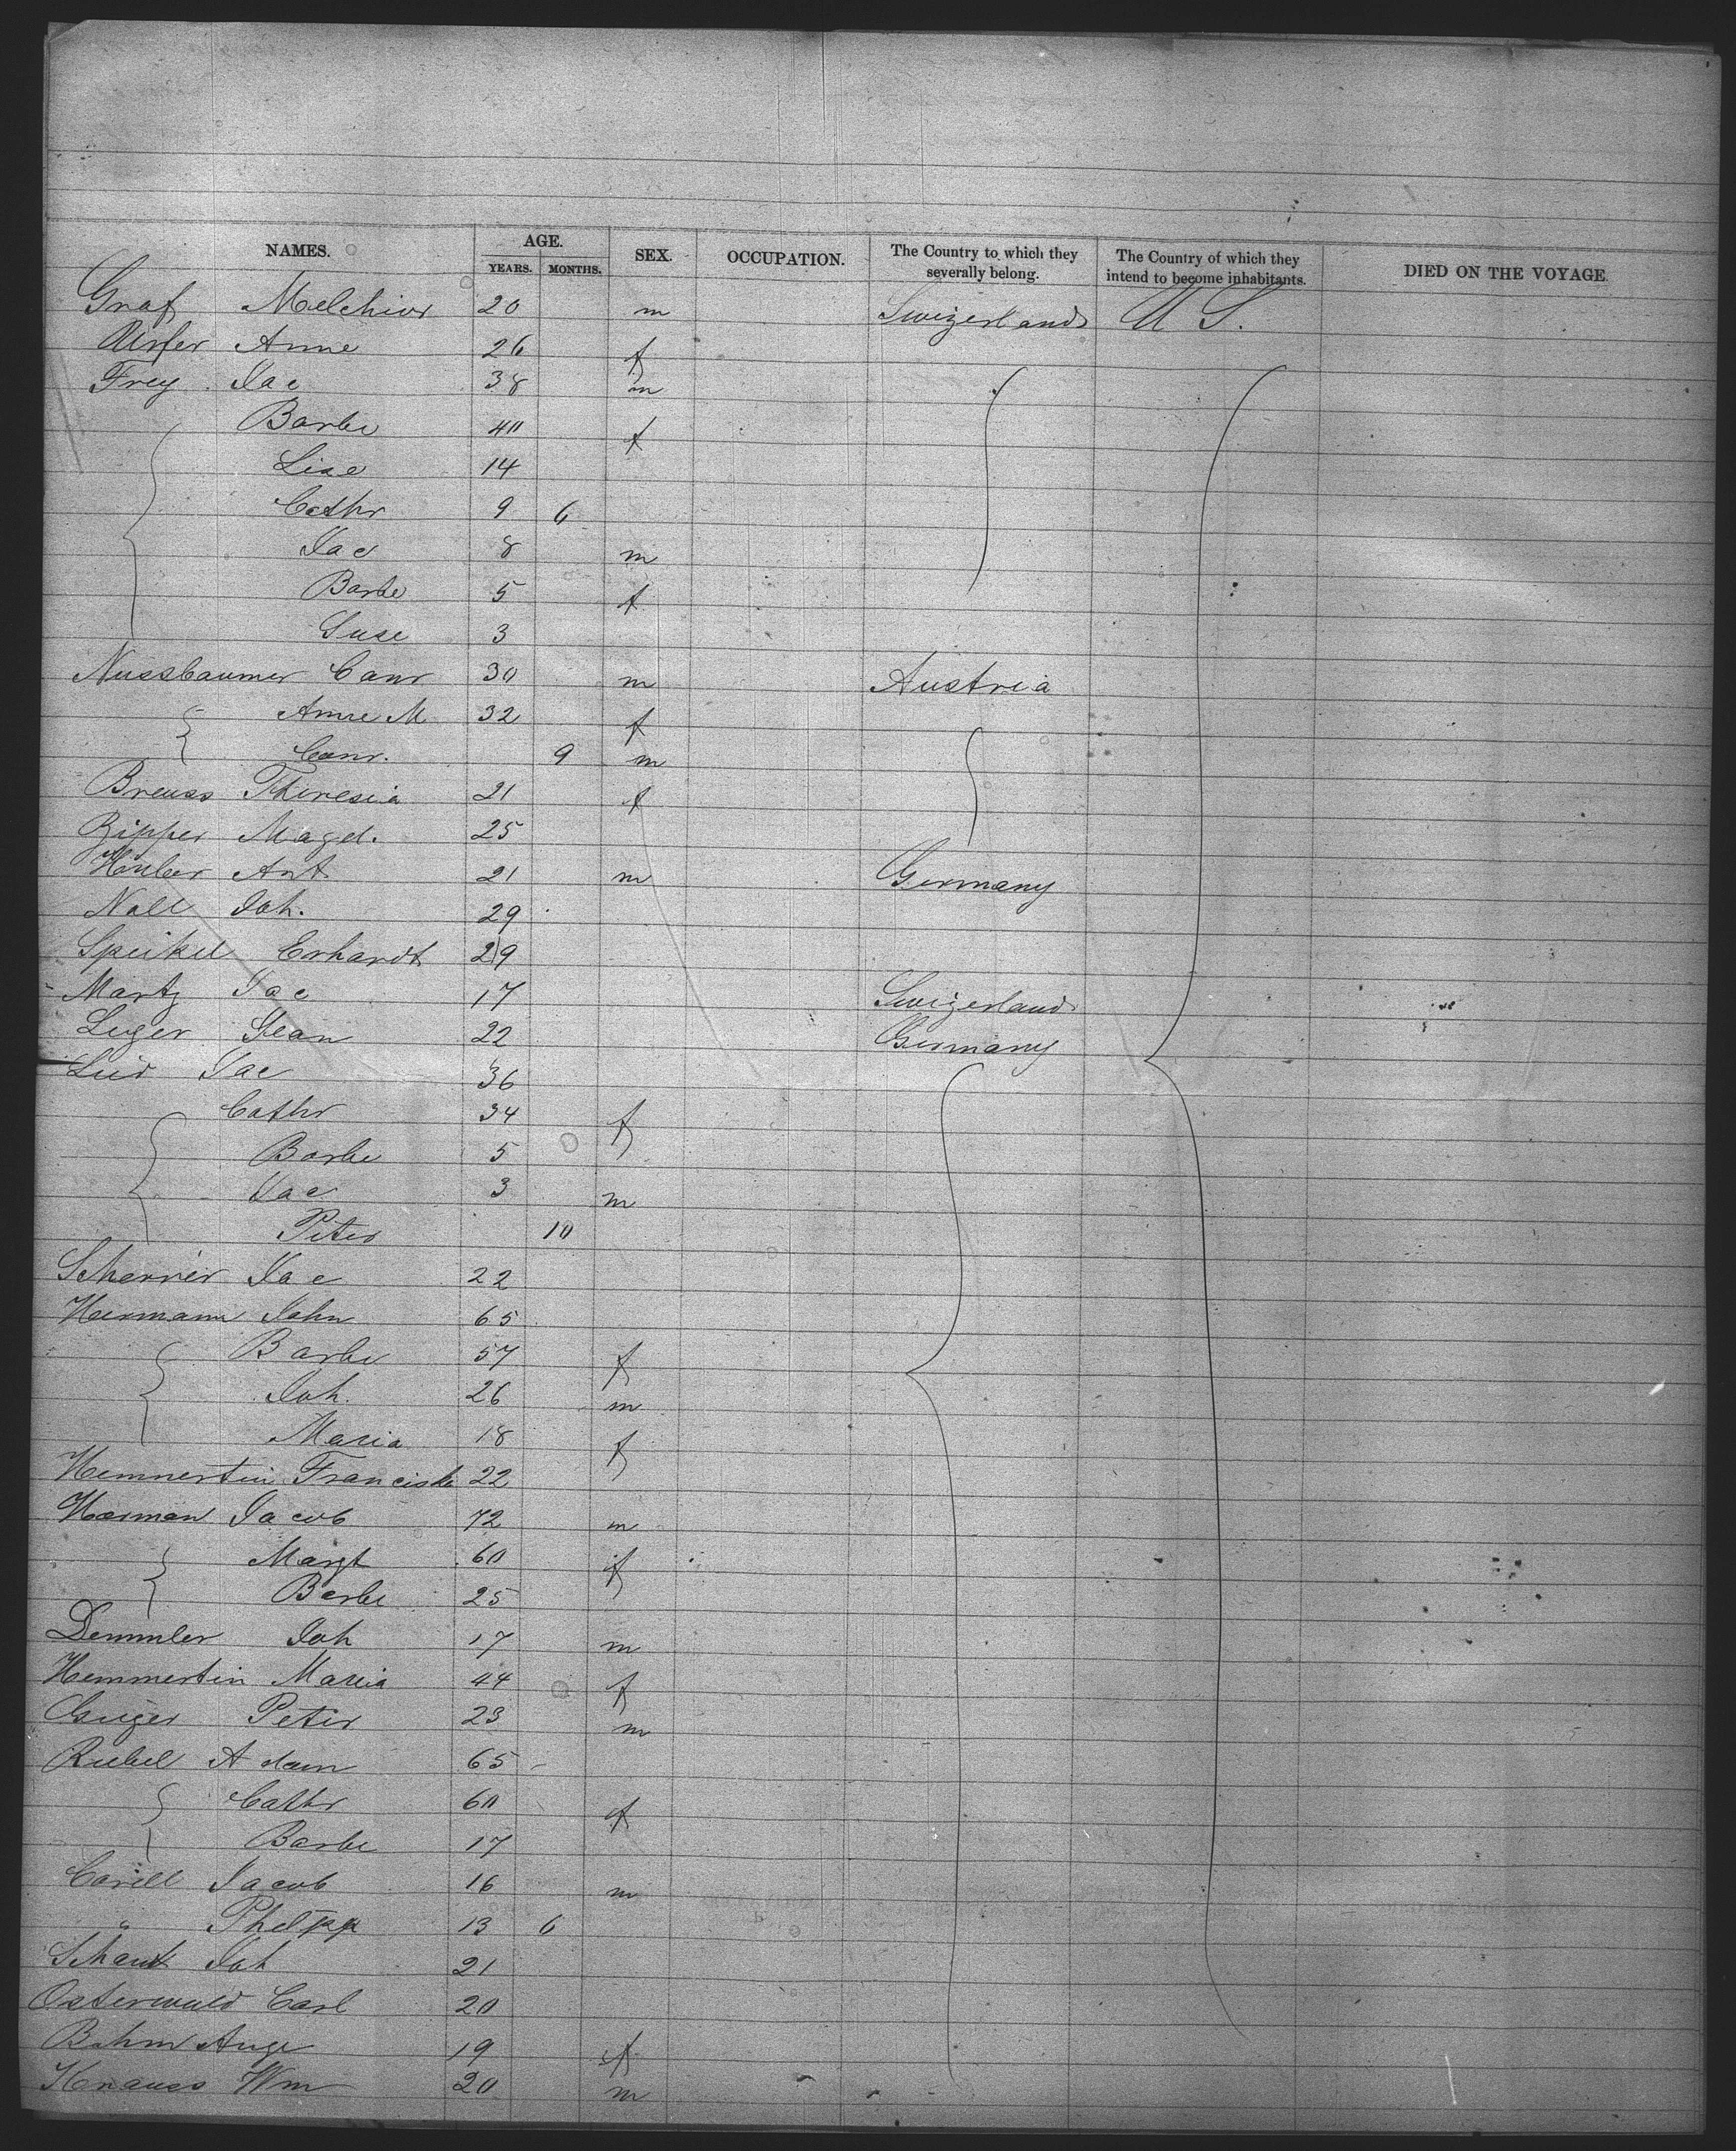 NAMES. AGE. SEX. OCCUPATION. The Country to which they severally belong. The Country of which they intend to become inhabitants. DIED ON THE VOYAGE.
YEARS. MONTHS.
Graf Melchior 20 m Swizerland U S.
Urfer Anne 26 f
Frey Jac 38 m
Barbe 40 f
Lise 14
Cathr 9 6
Jac 8 m
Barbe 5 f
Suse 3
Nussbaumer Conr 30 m Austria
Anne M 32 f
Conr. 9 m
Breuss Theresia 21 f
Zipper Magd. 25
Huber Ant 21 m Germany
Noll Joh. 29
Speikel Erhardt 29
Martz Jac 17 Swizerland
Luger Jean 22 Germany
Jac 36
Cathr 34 f
Barbe 5
Jac 3 m
Peter 10
Scherrer Jac 22
Hermann John 65
Barbe 57 f
Joh. 26 m
Maria 18 f
Hemmertin Franciska 22
Herman Jacob 72 m
Margt 60 f
Barbe 25
Demmler Joh 17 m
Hemmertin Maria 44 f
Peter 23 m
Riebel Adam 65
Cathr 60 f
Barbe 17
Carell Jacob 16 m
" 13 6
Joh 21
Osterwald Carl 20
Auge 19 f
Knauss Wm 20 m